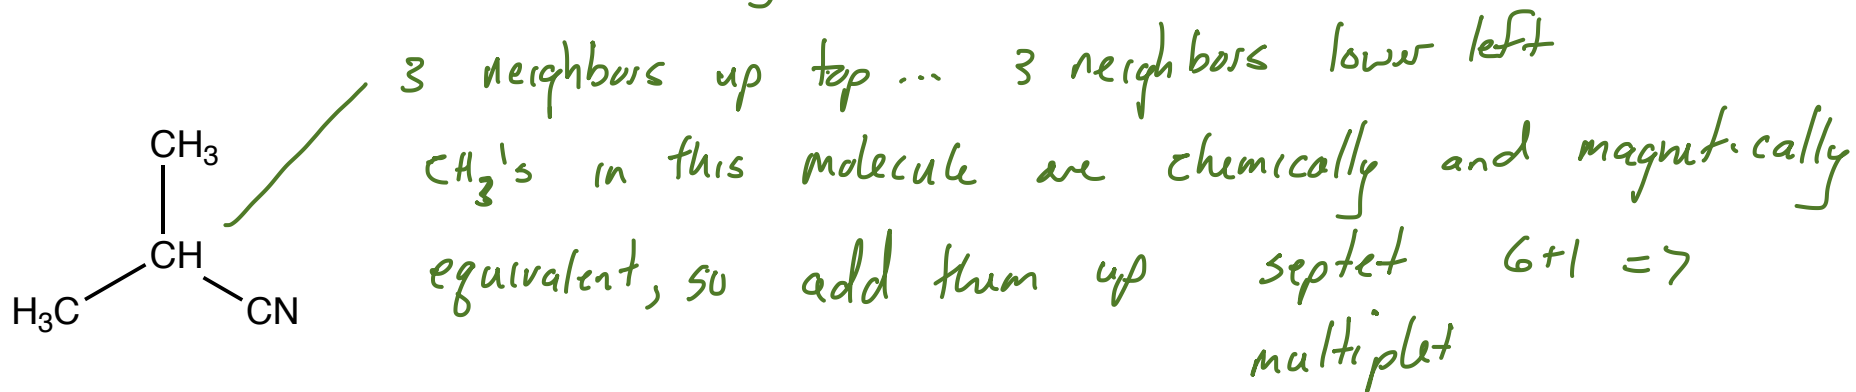 3 neighbors up top ... 3 neighbors lower left
CH3
CH3's in this molecule are chemically and magnetically
CH
equivalent, so add them up septet 6+1 =7
H3C
CN
multiplet